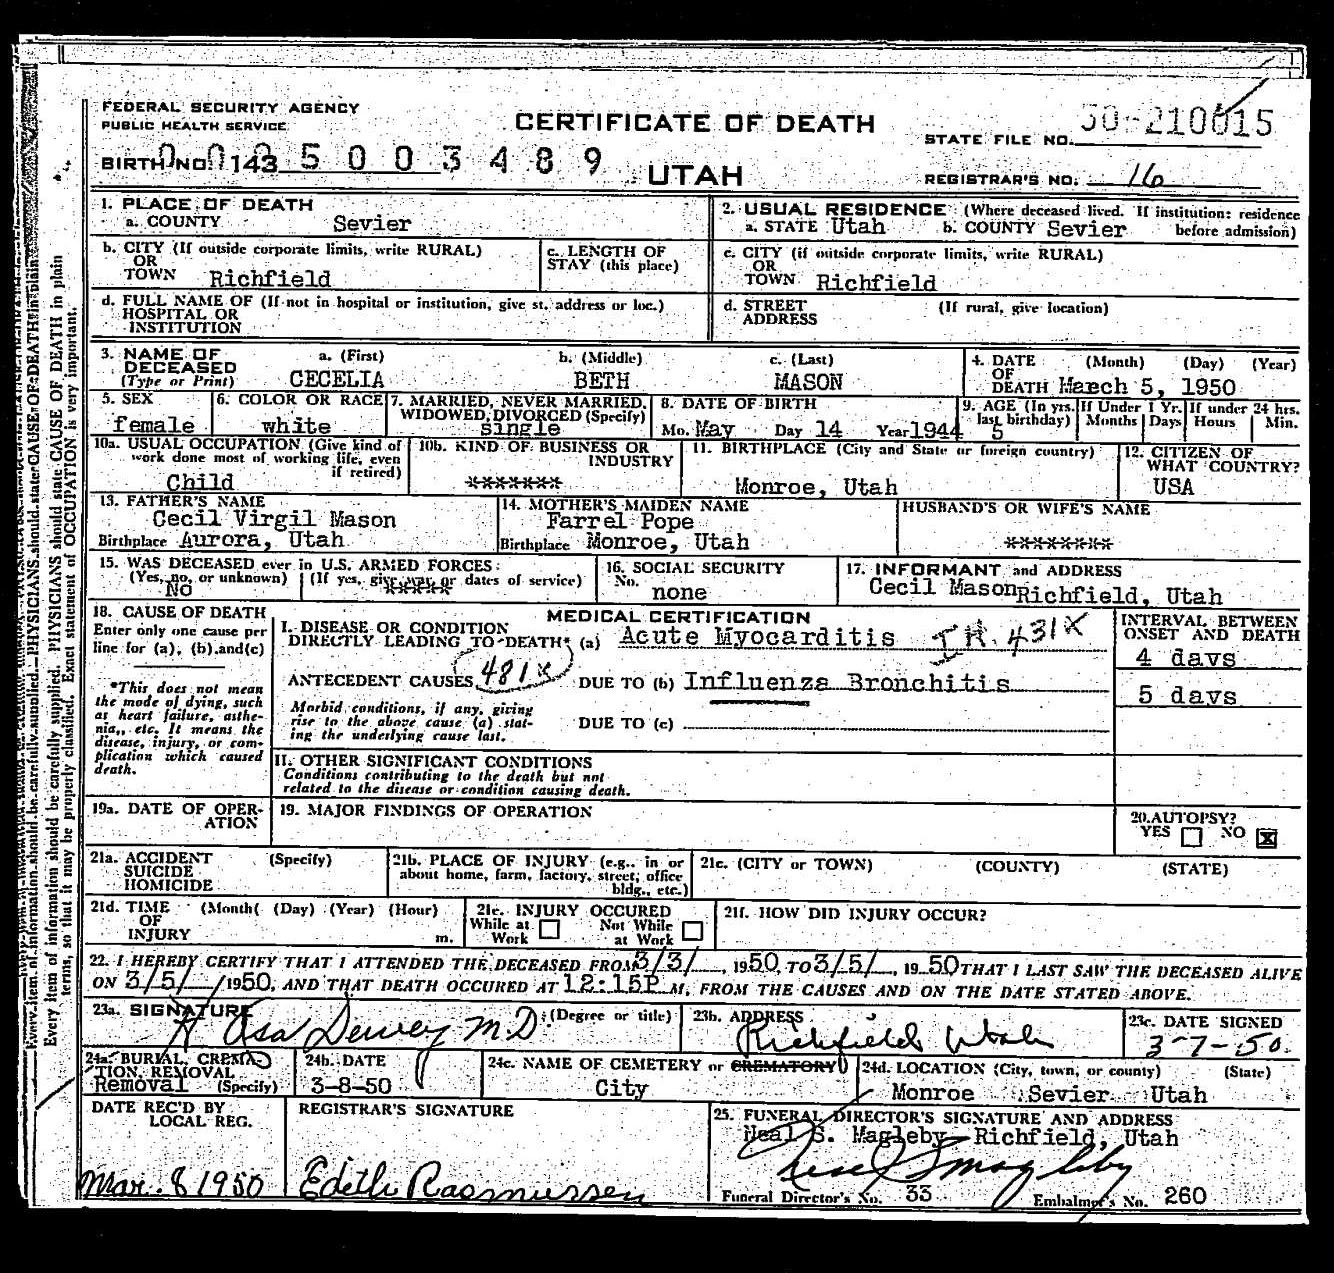 FEDERAL SECURITY AGENCY
PUBLIC HEALTH SERVICE
CERTIFICATE OF DEATH
UTAH
STATE FILE NO. 50-210015
BIRTH NO. 143
5003489
REGISTRAR'S NO. 16
1. PLACE OF DEATH
a. COUNTY Sevier
2. USUAL RESIDENCE (Where deceased lived. If institution: residence before admission)
a. STATE Utah b. COUNTY Sevier
b. CITY (If outside corporate limits, write RURAL)
OR
TOWN Richfield
c. LENGTH OF
STAY (this place)
c. CITY (if outside corporate limits, write RURAL)
OR
TOWN Richfield
d. FULL NAME OF (If not in hospital or institution, give st. address or loc.)
HOSPITAL OR
INSTITUTION
d. STREET (If rural, give location)
ADDRESS
3. NAME OF DECEASED (Type or Print)
a. (First) b. (Middle) c. (Last)
CECELIA BETH MASON
4. DATE (Month) (Day) (Year)
OF
DEATH March 5, 1950
5. SEX
female
6. COLOR OR RACE
white
7. MARRIED, NEVER MARRIED,
WIDOWED, DIVORCED (Specify)
single
8. DATE OF BIRTH
Mo. May Day 14 Year 1944
9. AGE (In yrs. last birthday)
5
If Under 1 Yr.
Months Days
If under 24 hrs.
Hours Min.
10a. USUAL OCCUPATION (Give kind of
work done most of working life, even
if retired)
Child
10b. KIND OF BUSINESS OR
INDUSTRY
*******
11. BIRTHPLACE (City and State or foreign country)
Monroe, Utah
12. CITIZEN OF
WHAT COUNTRY?
USA
13. FATHER'S NAME
Cecil Virgil Mason
Birthplace Aurora, Utah
14. MOTHER'S MAIDEN NAME
Farrel Pope
Birthplace Monroe, Utah
HUSBAND'S OR WIFE'S NAME
********
15. WAS DECEASED ever in U.S. ARMED FORCES:
(Yes, no, or unknown) (If yes, give war or dates of service)
No *****
16. SOCIAL SECURITY
No.
none
17. INFORMANT and ADDRESS
Cecil Mason Richfield, Utah
18. CAUSE OF DEATH
Enter only one cause per
line for (a), (b) and (c)
*This does not mean
the mode of dying, such
as heart failure, asthe-
nia, etc. It means the
disease, injury, or com-
plication which caused
death.
MEDICAL CERTIFICATION
I. DISEASE OR CONDITION
DIRECTLY LEADING TO DEATH* (a) Acute Myocarditis 431X
ANTECEDENT CAUSES 481X DUE TO (b) Influenza Bronchitis
Morbid conditions, if any, giving
rise to the above cause (a) stat-
ing the underlying cause last.
DUE TO (c)
INTERVAL BETWEEN
ONSET AND DEATH
4 days
5 days
II. OTHER SIGNIFICANT CONDITIONS
Conditions contributing to the death but not
related to the disease or condition causing death.
19a. DATE OF OPER-
ATION
19. MAJOR FINDINGS OF OPERATION
20. AUTOPSY?
YES NO X
21a. ACCIDENT (Specify)
SUICIDE
HOMICIDE
21b. PLACE OF INJURY (e.g., in or
about home, farm, factory, street, office
bldg., etc.)
21c. (CITY or TOWN) (COUNTY) (STATE)
21d. TIME (Month( (Day) (Year) (Hour)
OF
INJURY m.
21e. INJURY OCCURED
While at Work Not While at Work
21f. HOW DID INJURY OCCUR?
22. I HEREBY CERTIFY THAT I ATTENDED THE DECEASED FROM 3/3/, 1950, TO 3/5/, 1950 THAT I LAST SAW THE DECEASED ALIVE
ON 3/5/ 1950, AND THAT DEATH OCCURED AT 12:15P M, FROM THE CAUSES AND ON THE DATE STATED ABOVE.
23a. SIGNATURE (Degree or title)
Asa Dewey M D.
23b. ADDRESS
Richfield Utah
23c. DATE SIGNED
3-7-50
24a. BURIAL, CREMA-
TION, REMOVAL
Removal (Specify)
24b. DATE
3-8-50
24c. NAME OF CEMETERY or CREMATORY
City
24d. LOCATION (City, town, or county) (State)
Monroe Sevier Utah
DATE REC'D BY
LOCAL REG.
Mar. 8 1950
REGISTRAR'S SIGNATURE
Edith Rasmussen
25. FUNERAL DIRECTOR'S SIGNATURE AND ADDRESS
Neal S. Magleby Richfield, Utah
Neal S Magleby
Funeral Director's No. 33 Embalmer's No. 260
Every item of information should be carefully supplied. PHYSICIANS should state CAUSE OF DEATH in plain
terms, so that it may be properly classified. Exact statement of OCCUPATION is very important.